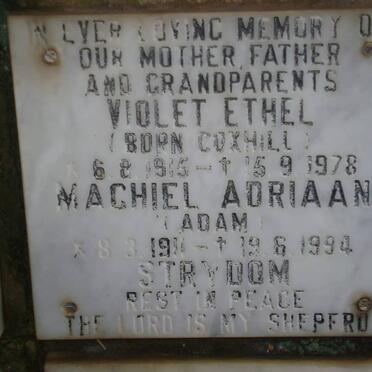 IN EVER LOVING MEMORY O
OUR MOTHER, FATHER
AND GRANDPARENTS
VIOLET ETHEL
(BORN COXHILL)
* 6.8.1915 - † 15.9.1978
MACHIEL ADRIAAN
(ADAM)
* 8.3.1911 - † 19.6.1994
STRYDOM
REST IN PEACE
THE LORD IS MY SHEPERD